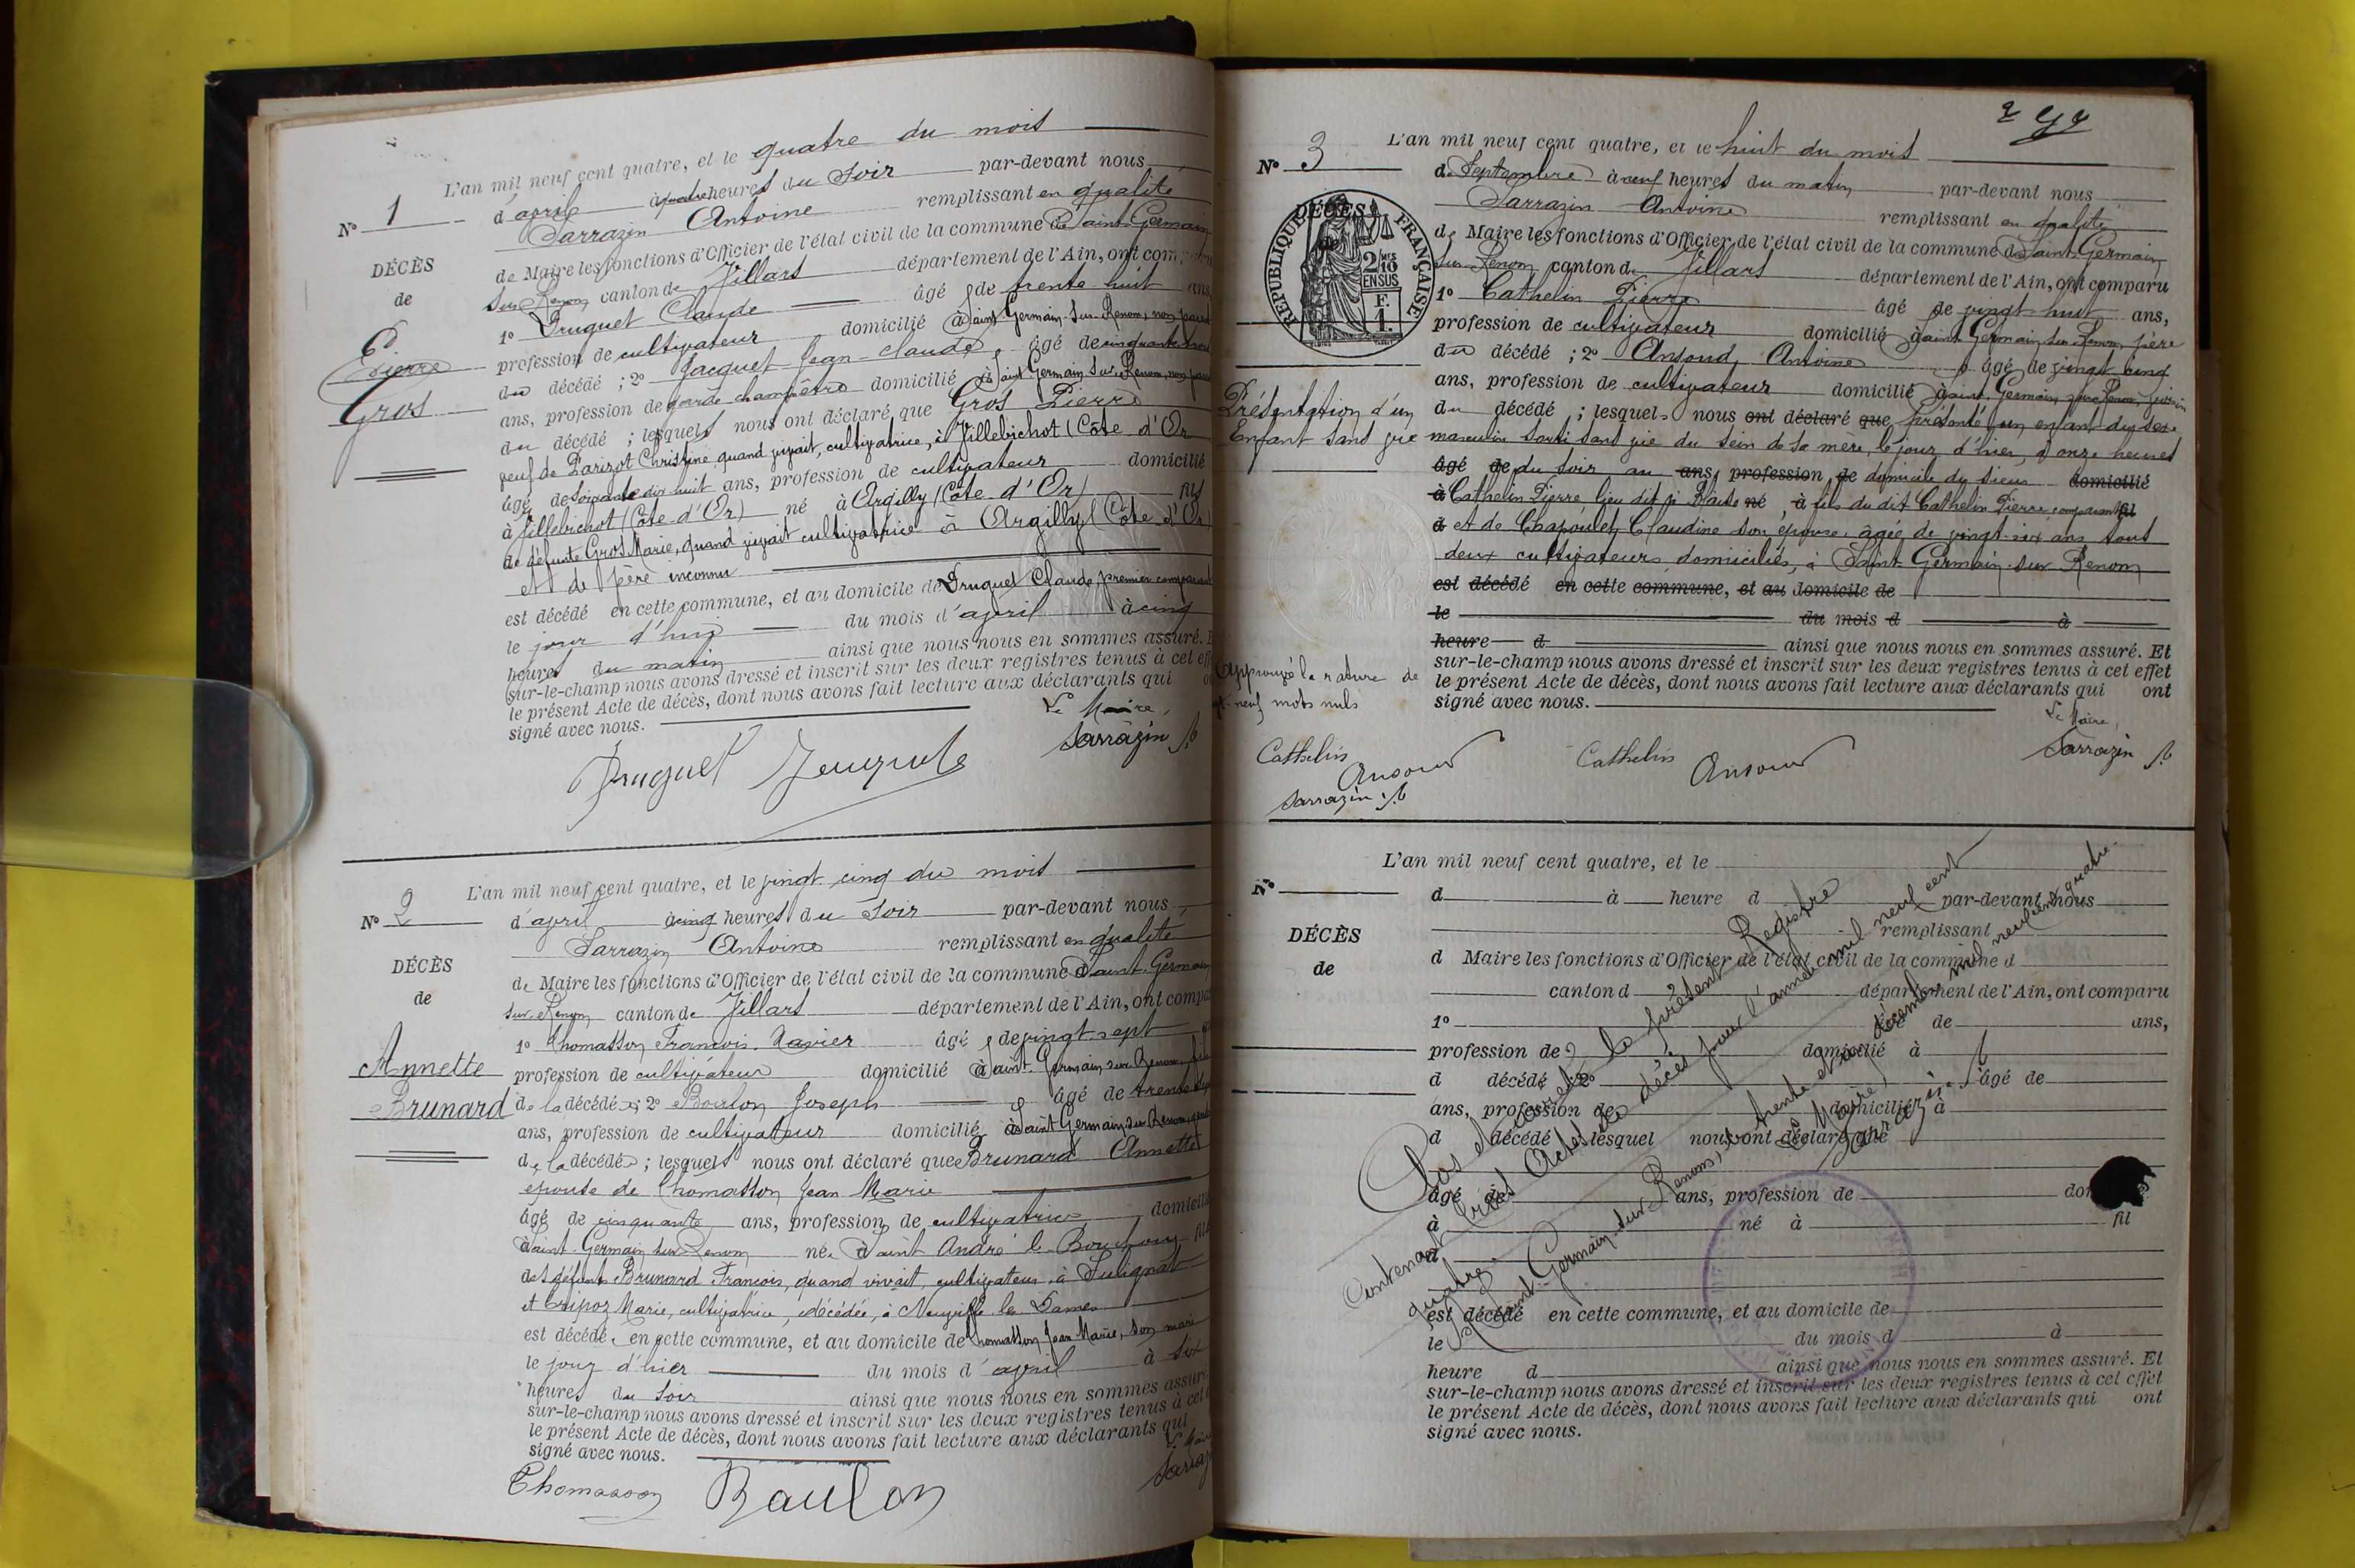 L'an mil neuf cent quatre, et le quatre du mois
N° 1
d'avril à quatre heures du soir par-devant nous
Sarrazin Antoine remplissant en qualité
DÉCÈS
de Maire les fonctions d'Officier de l'état civil de la commune de Saint-Germain
de
sur Renom canton de Villars département de l'Ain, ont comparu
1° Druguet Claude âgé de trente huit ans
Pierre
profession de cultivateur domicilié à Saint Germain-sur-Renom, non parent
Gros
du décédé ; 2° Jacquet Jean-Claude, âgé de cinquante
ans, profession de garde champêtre domicilié à Saint Germain sur Renom, non parent
du décédé ; lesquels nous ont déclaré que Gros Pierre
veuf de Parizot Christine, quand vivait, cultivatrice, à Villebichot (Côte d'Or
âgé de soixante dix huit ans, profession de cultivateur domicilié
à Villebichot (Côte d'Or) né à Argilly (Côte d'Or) fils
de défunte Gros Marie, quand vivait cultivatrice à Argilly (Côte d'Or)
et de père inconnu
est décédé en cette commune, et au domicile de Druguet Claude, premier comparant
le jour d'hui du mois d'avril à cinq
heures du matin ainsi que nous nous en sommes assuré. E
sur-le-champ nous avons dressé et inscrit sur les deux registres tenus à cet eff
le présent Acte de décès, dont nous avons fait lecture aux déclarants qui on
signé avec nous.
Le Maire,
Sarrazin A
Druguet
L'an mil neuf cent quatre, et le vingt cinq du mois
N° 2
d'avril à cinq heures du soir par-devant nous
Sarrazin Antoine remplissant en qualité
DÉCÈS
de Maire les fonctions d'Officier de l'état civil de la commune de Saint-Germain
de
sur Renom canton de Villars département de l'Ain, ont compa
1° Thomasson François Xavier âgé de vingt sept
Annette
profession de cultivateur domicilié à Saint Germain sur Renom, fils
Brunard
de la décédée ; 2° Boulon Joseph âgé de trente
ans, profession de cultivateur domicilié à Saint Germain sur Renom
de la décédée ; lesquels nous ont déclaré que Brunard Annette
épouse de Thomasson Jean Marie
âgé de cinquante ans, profession de cultivatrice domicili
à Saint-Germain sur Renom née à Saint André le Bouchoux fille
des défunts Brunard François, quand vivait, cultivateur à Sulignat
et Tripoz Marie, cultivatrice, décédée, à Neuville les Dames
est décédée en cette commune, et au domicile de Thomasson Jean Marie, son mari
le jour d'hier du mois d'avril à six
heures du soir ainsi que nous nous en sommes assuré
sur-le-champ nous avons dressé et inscrit sur les deux registres tenus à cet
le présent Acte de décès, dont nous avons fait lecture aux déclarants qui
signé avec nous.
Thomasson Baulon
277
L'an mil neuf cent quatre, et le huit du mois
N° 3
de Septembre à neuf heures du matin par-devant nous
Sarrazin Antoine remplissant en qualité
DÉCÈS
de
RÉPUBLIQUE FRANÇAISE
2 10 MES
EN SUS
F.
1.
de Maire les fonctions d'Officier de l'état civil de la commune de Saint Germain
sur Renom canton de Villars département de l'Ain, ont comparu
1° Cathelin Pierre âgé de vingt-huit ans,
profession de cultivateur domicilié à Saint Germain sur Renom, père
du décédé ; 2° Ansoud Antoine âgé de vingt cinq
ans, profession de cultivateur domicilié à Saint-Germain sur Renom, voisin
Présentation d'un
Enfant sans vie
du décédé ; lesquels nous ont déclaré que présenté un enfant du sexe
masculin sorti sans vie du sein de sa mère, le jour d'hier, à onze heures
âgé de du soir au ans, profession de domicile du sieur domicilié
à Cathelin Pierre, lieu dit né, à fils du dit Cathelin Pierre comparant fil
d et de Chapoulet Claudine son épouse, âgée de vingt-six ans tous
deux cultivateurs domiciliés, à Saint-Germain-sur Renom
est décédé en cette commune, et au domicile de
le du mois d à
heure d ainsi que nous nous en sommes assuré. Et
sur-le-champ nous avons dressé et inscrit sur les deux registres tenus à cet effet
le présent Acte de décès, dont nous avons fait lecture aux déclarants qui ont
signé avec nous.
Approuvé la rature de
neuf mots nuls
Cathelin
Ansoud
Sarrazin A
Cathelin Ansoud
Le Maire,
Sarrazin A
L'an mil neuf cent quatre, et le
N°
d à heure d par-devant nous
remplissant
DÉCÈS
de
d Maire les fonctions d'Officier de l'état civil de la commune d
canton d département de l'Ain, ont comparu
1° âgé de ans,
profession de domicilié à
d décédé ; 2° âgé de
ans, profession de domicilié à
d décédé lesquel nous ont déclaré que
âgé de ans, profession de dom
à né à fil
d
est décédé en cette commune, et au domicile de
le du mois d à
heure d ainsi que nous nous en sommes assuré. Et
sur-le-champ nous avons dressé et inscrit sur les deux registres tenus à cet effet
le présent Acte de décès, dont nous avons fait lecture aux déclarants qui ont
signé avec nous.
Clos et arrêté le présent Registre
Contenant trois Actes de décès pour l'année mil neuf cent
quatre.
à Saint-Germain-sur Renom, le trente et un décembre mil neuf cent quatre.
Le Maire,
Sarrazin A